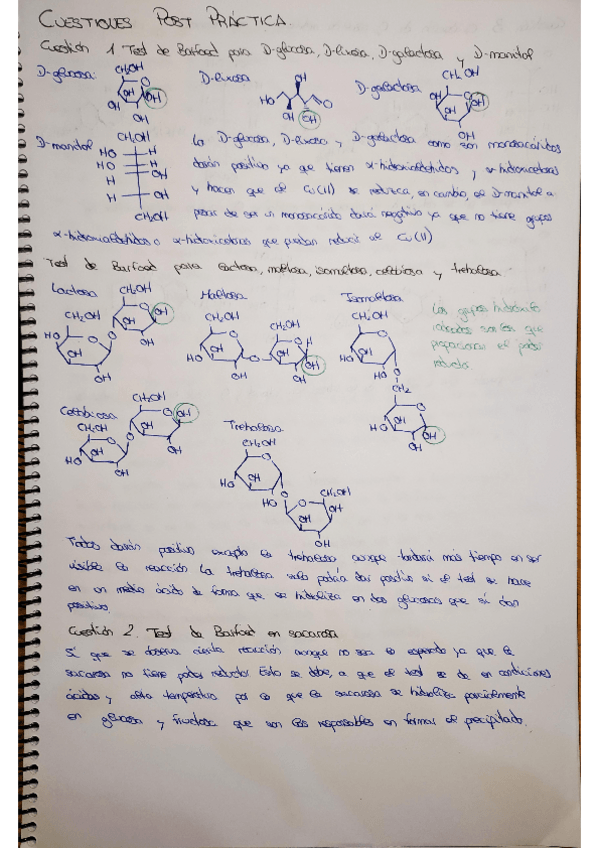 CUESTIONES POST PRÁCTICA.
Cuestión 1 Test de Barfoed para D-glucosa, D-lixosa, D-galactosa y D-manitol
D-glucosa: CH2OH O OH OH OH OH
D-lixosa HO OH O OH OH
D-galactosa CH2OH O OH OH OH OH
D-manitol CH2OH
HO H
HO H
H OH
H OH
CH2OH
La D-glucosa, D-lixosa y D-galactosa como son monosacáridos
darán positivo ya que tienen α-hidroxialdehidos y α-hidroxicetonas
y hacen que el Cu(II) se reduzca, en cambio, el D-manitol a
pesar de ser un monosacárido dará negativo ya que no tiene grupos
α-hidroxialdehidos o α-hidroxicetonas que puedan reducir al Cu(II)
Test de Barfoed para lactosa, maltosa, isomaltosa, celobiosa y trehalosa.
Lactosa CH2OH O OH CH2OH HO O OH O OH OH
Maltosa CH2OH O OH HO OH O CH2OH O OH OH OH
Isomaltosa CH2OH O OH HO OH O CH2 O OH HO OH OH
Los grupos hidroxilo
rodeados son los que
proporcionan el poder
reductor
Celobiosa CH2OH O OH CH2OH O OH HO OH O OH
Trehalosa CH2OH O OH HO O HO CH2OH O OH OH OH
Todos darán positivo excepto la trehalosa aunque tardará más tiempo en ser
visible la reacción La trehalosa solo podría dar positivo si el test se hace
en un medio ácido de forma que se hidroliza en dos glucosas que sí dan
positivo
Cuestión 2. Test de Barfoed en sacarosa
Sí que se observa cierta reacción aunque no sea lo esperado ya que la
sacarosa no tiene poder reductor Esto se debe, a que el test se da en condiciones
ácidas y alta temperatura por lo que la sacarosa se hidroliza parcialmente
en glucosa y fructosa que son las responsables en formar el precipitado.